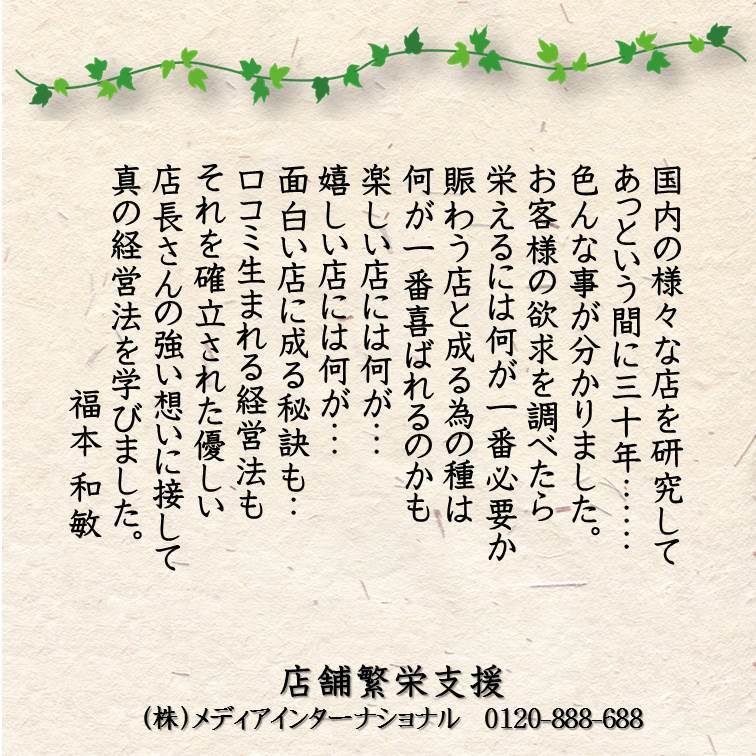 国内の様々な店を研究して
あっという間に三十年……
色んな事が分かりました。
お客様の欲求を調べたら
栄えるには何が一番必要か
賑わう店と成る為の種は
何が一番喜ばれるのかも
楽しい店には何が…
嬉しい店には何が…
面白い店に成る秘訣も‥
口コミ生まれる経営法も
それを確立された優しい
店長さんの強い想いに接して
真の経営法を学びました。
福本和敏
店舗繁栄支援
(株)メディアインターナショナル 0120-888-688